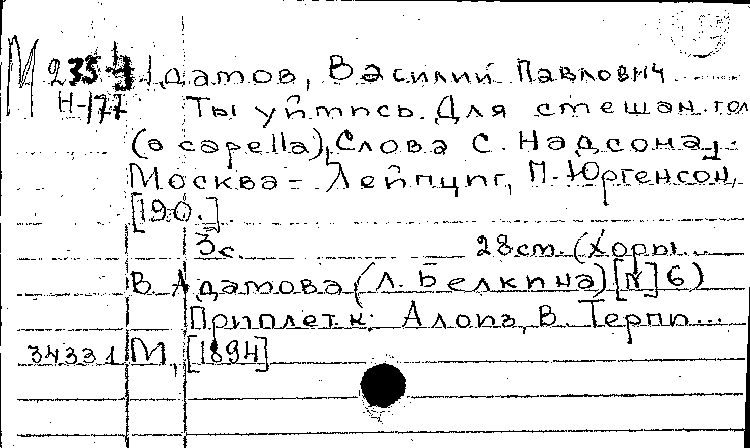 М 235-4 Адамов, Василий Павлович
Н-177 Ты уймись. Для смешан. гол
(a capella), Слова С. Надсона,
Москва - Лейпциг, П. Юргенсон,
[190.]
3с. 28см. (Хоры...
В. Адамова (Л. Белкина) [N] 6)
Приплет. к: Алоиз, В. Терпи...
34331 М, [1894]